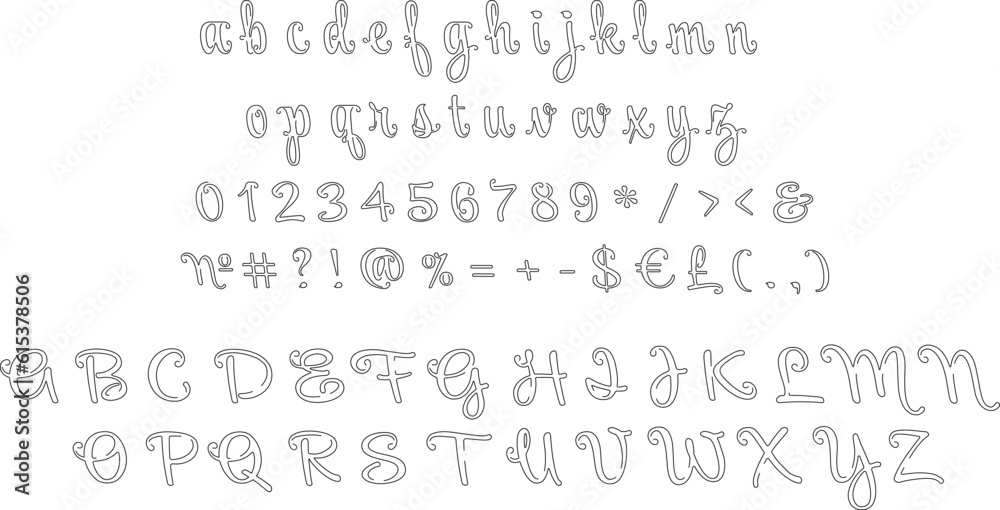 a b c d e f g h i j k l m n
o p q r s t u v w x y z
0 1 2 3 4 5 6 7 8 9 * / > < &
№ # ? ! @ % = + - $ € £ ( . , )
A B C D E F G H I J K L M N
O P Q R S T U V W X Y Z
Adobe Stock | #615378506